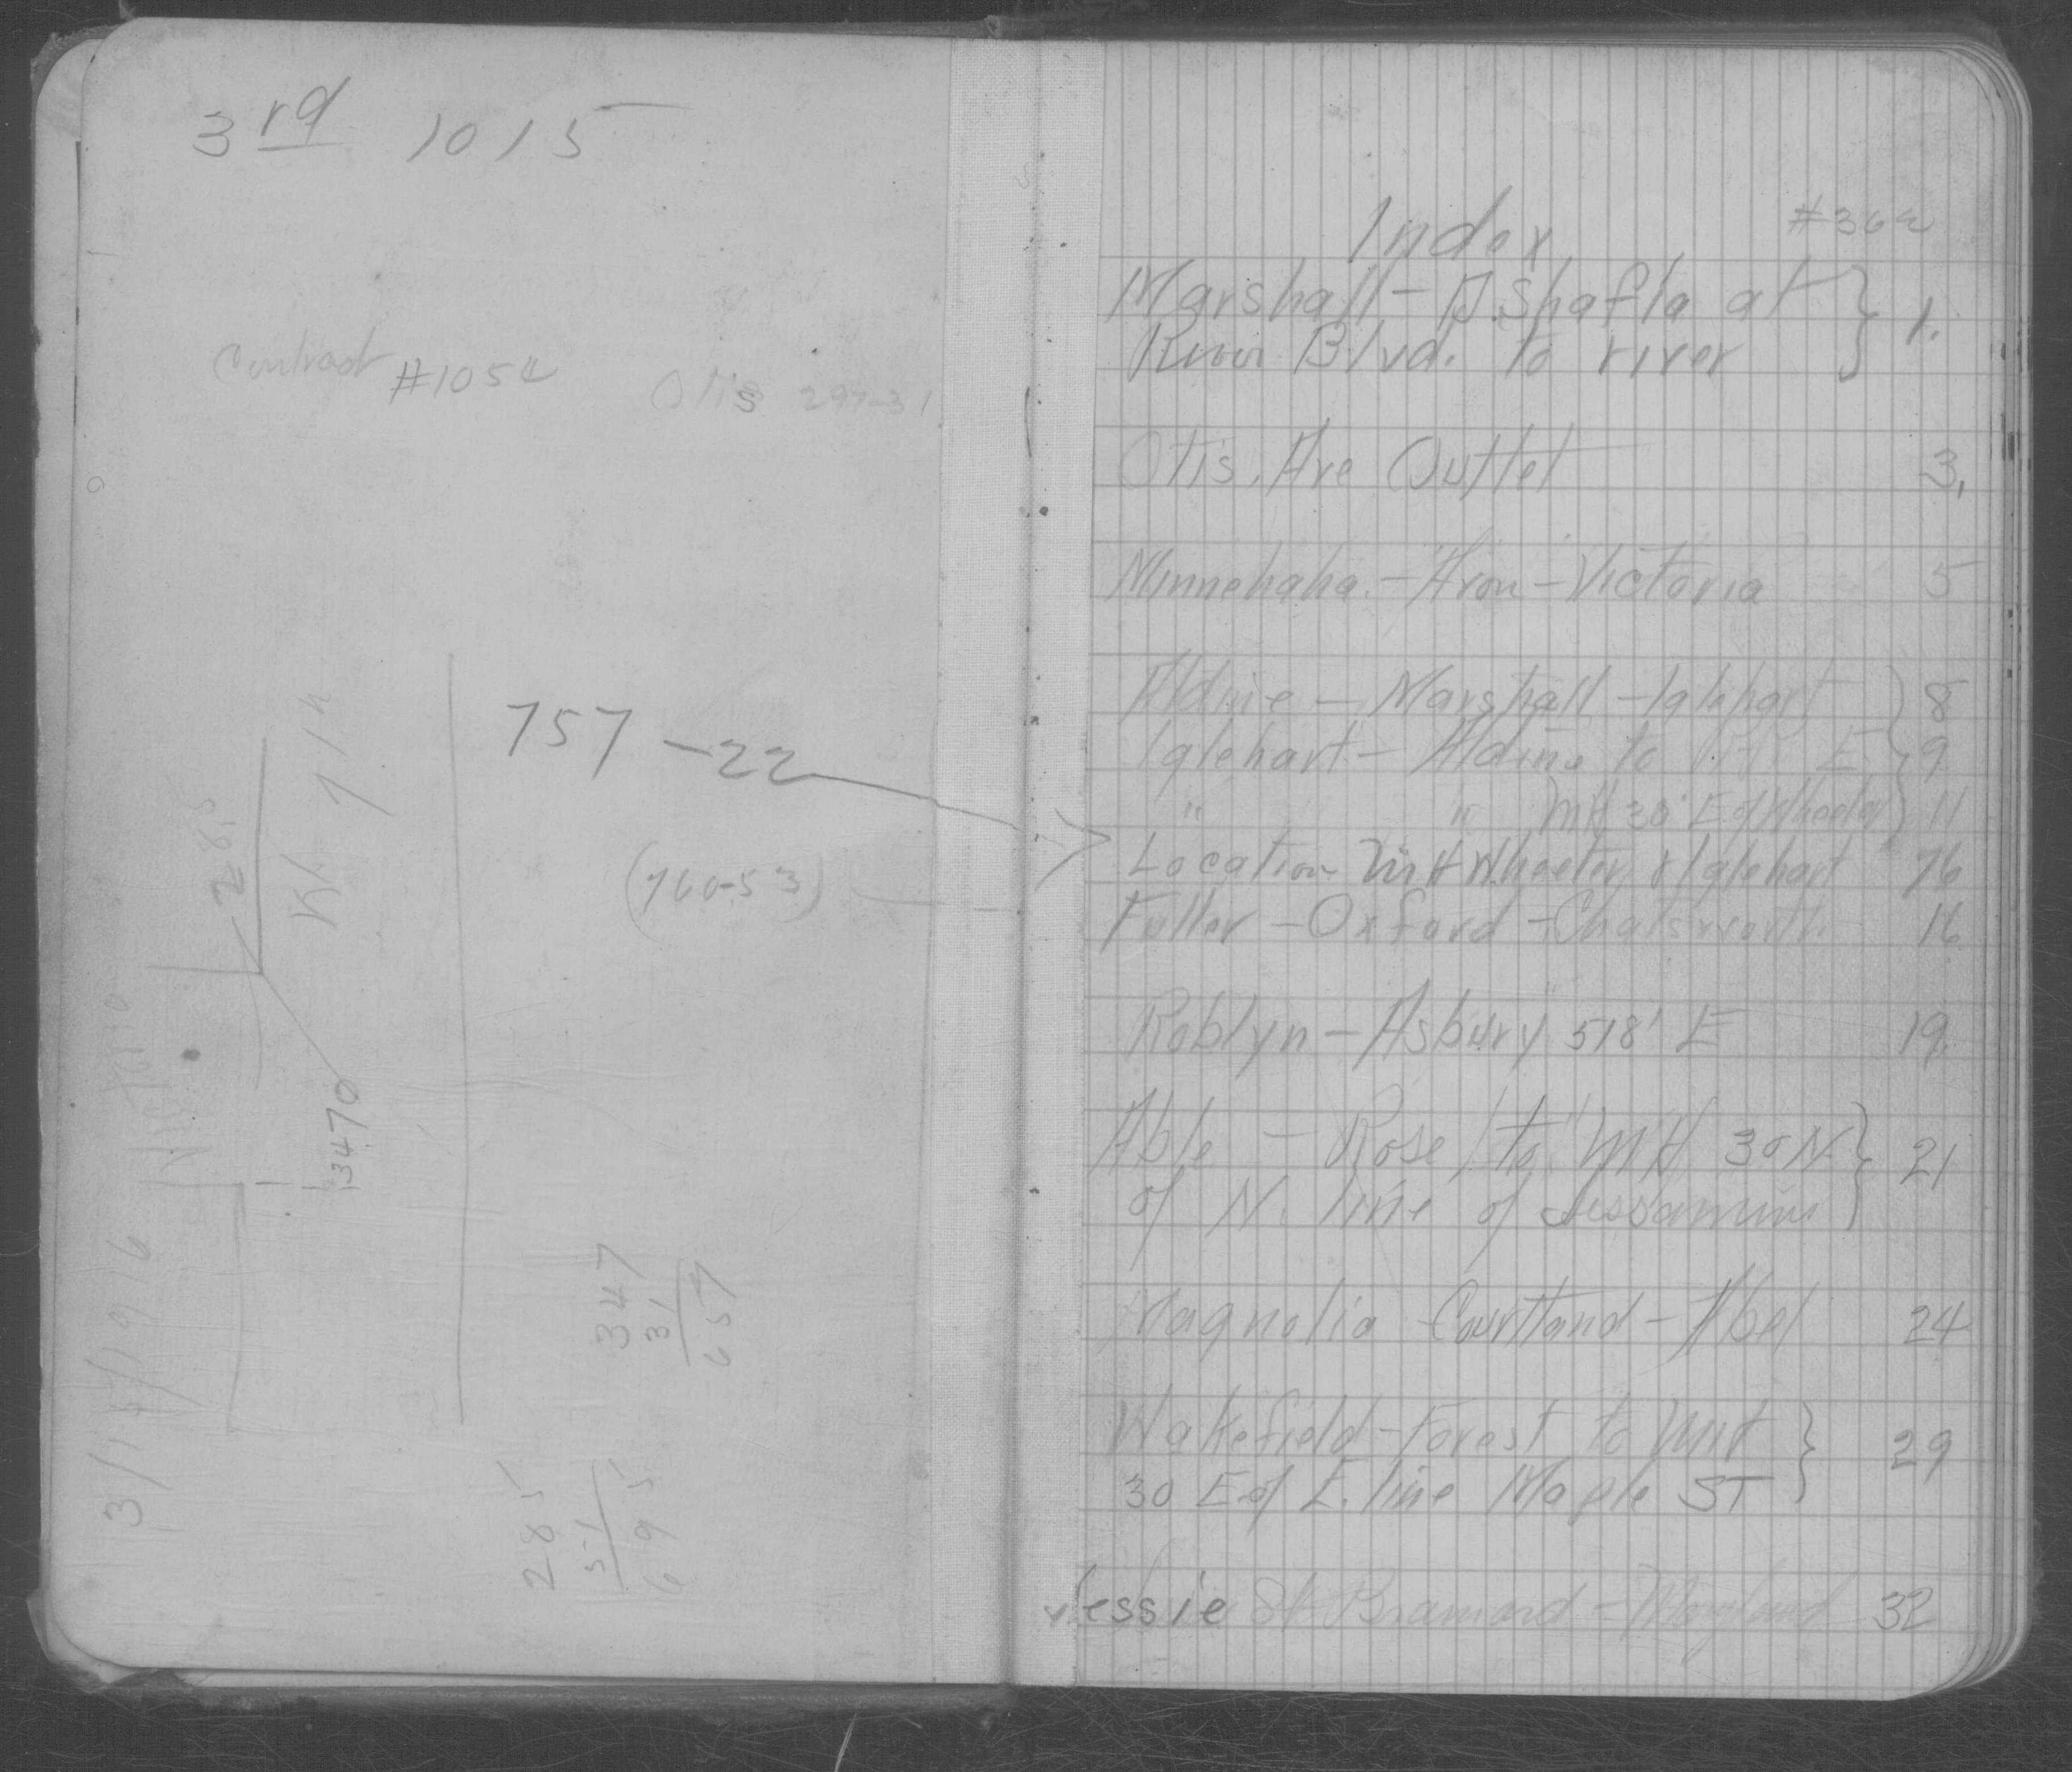 3rd 1015
Contract #1054
Otis 297-31
757-22
(760-53)
285
3470
3/14/1916
347
31
657
285
51
695
Index
Marshall - D. Shaft a at } 1.
River Blvd. to river
Otis. Ave Outlet 3.
Minnehaha - Avon - Victoria 5
Aldine - Marshall - Iglehart 8
Iglehart - Aldine to E. 9
" " MH 30' E of Wheeler 11
Location MH Wheeler & Iglehart 76
Fuller - Oxford - Chatsworth 16
Roblyn - Asbury 518' E 19
Able - Rose to MH 30 N } 21
of N. line of Jessamine
Magnolia Courtland - Abel 24
Wakefield - Forest to MH } 29
30 E of E. line Maple ST
Jessie St Brainard - Maryland 32